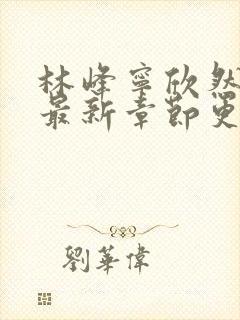 林峰寧欣然
最新章節更
劉華偉